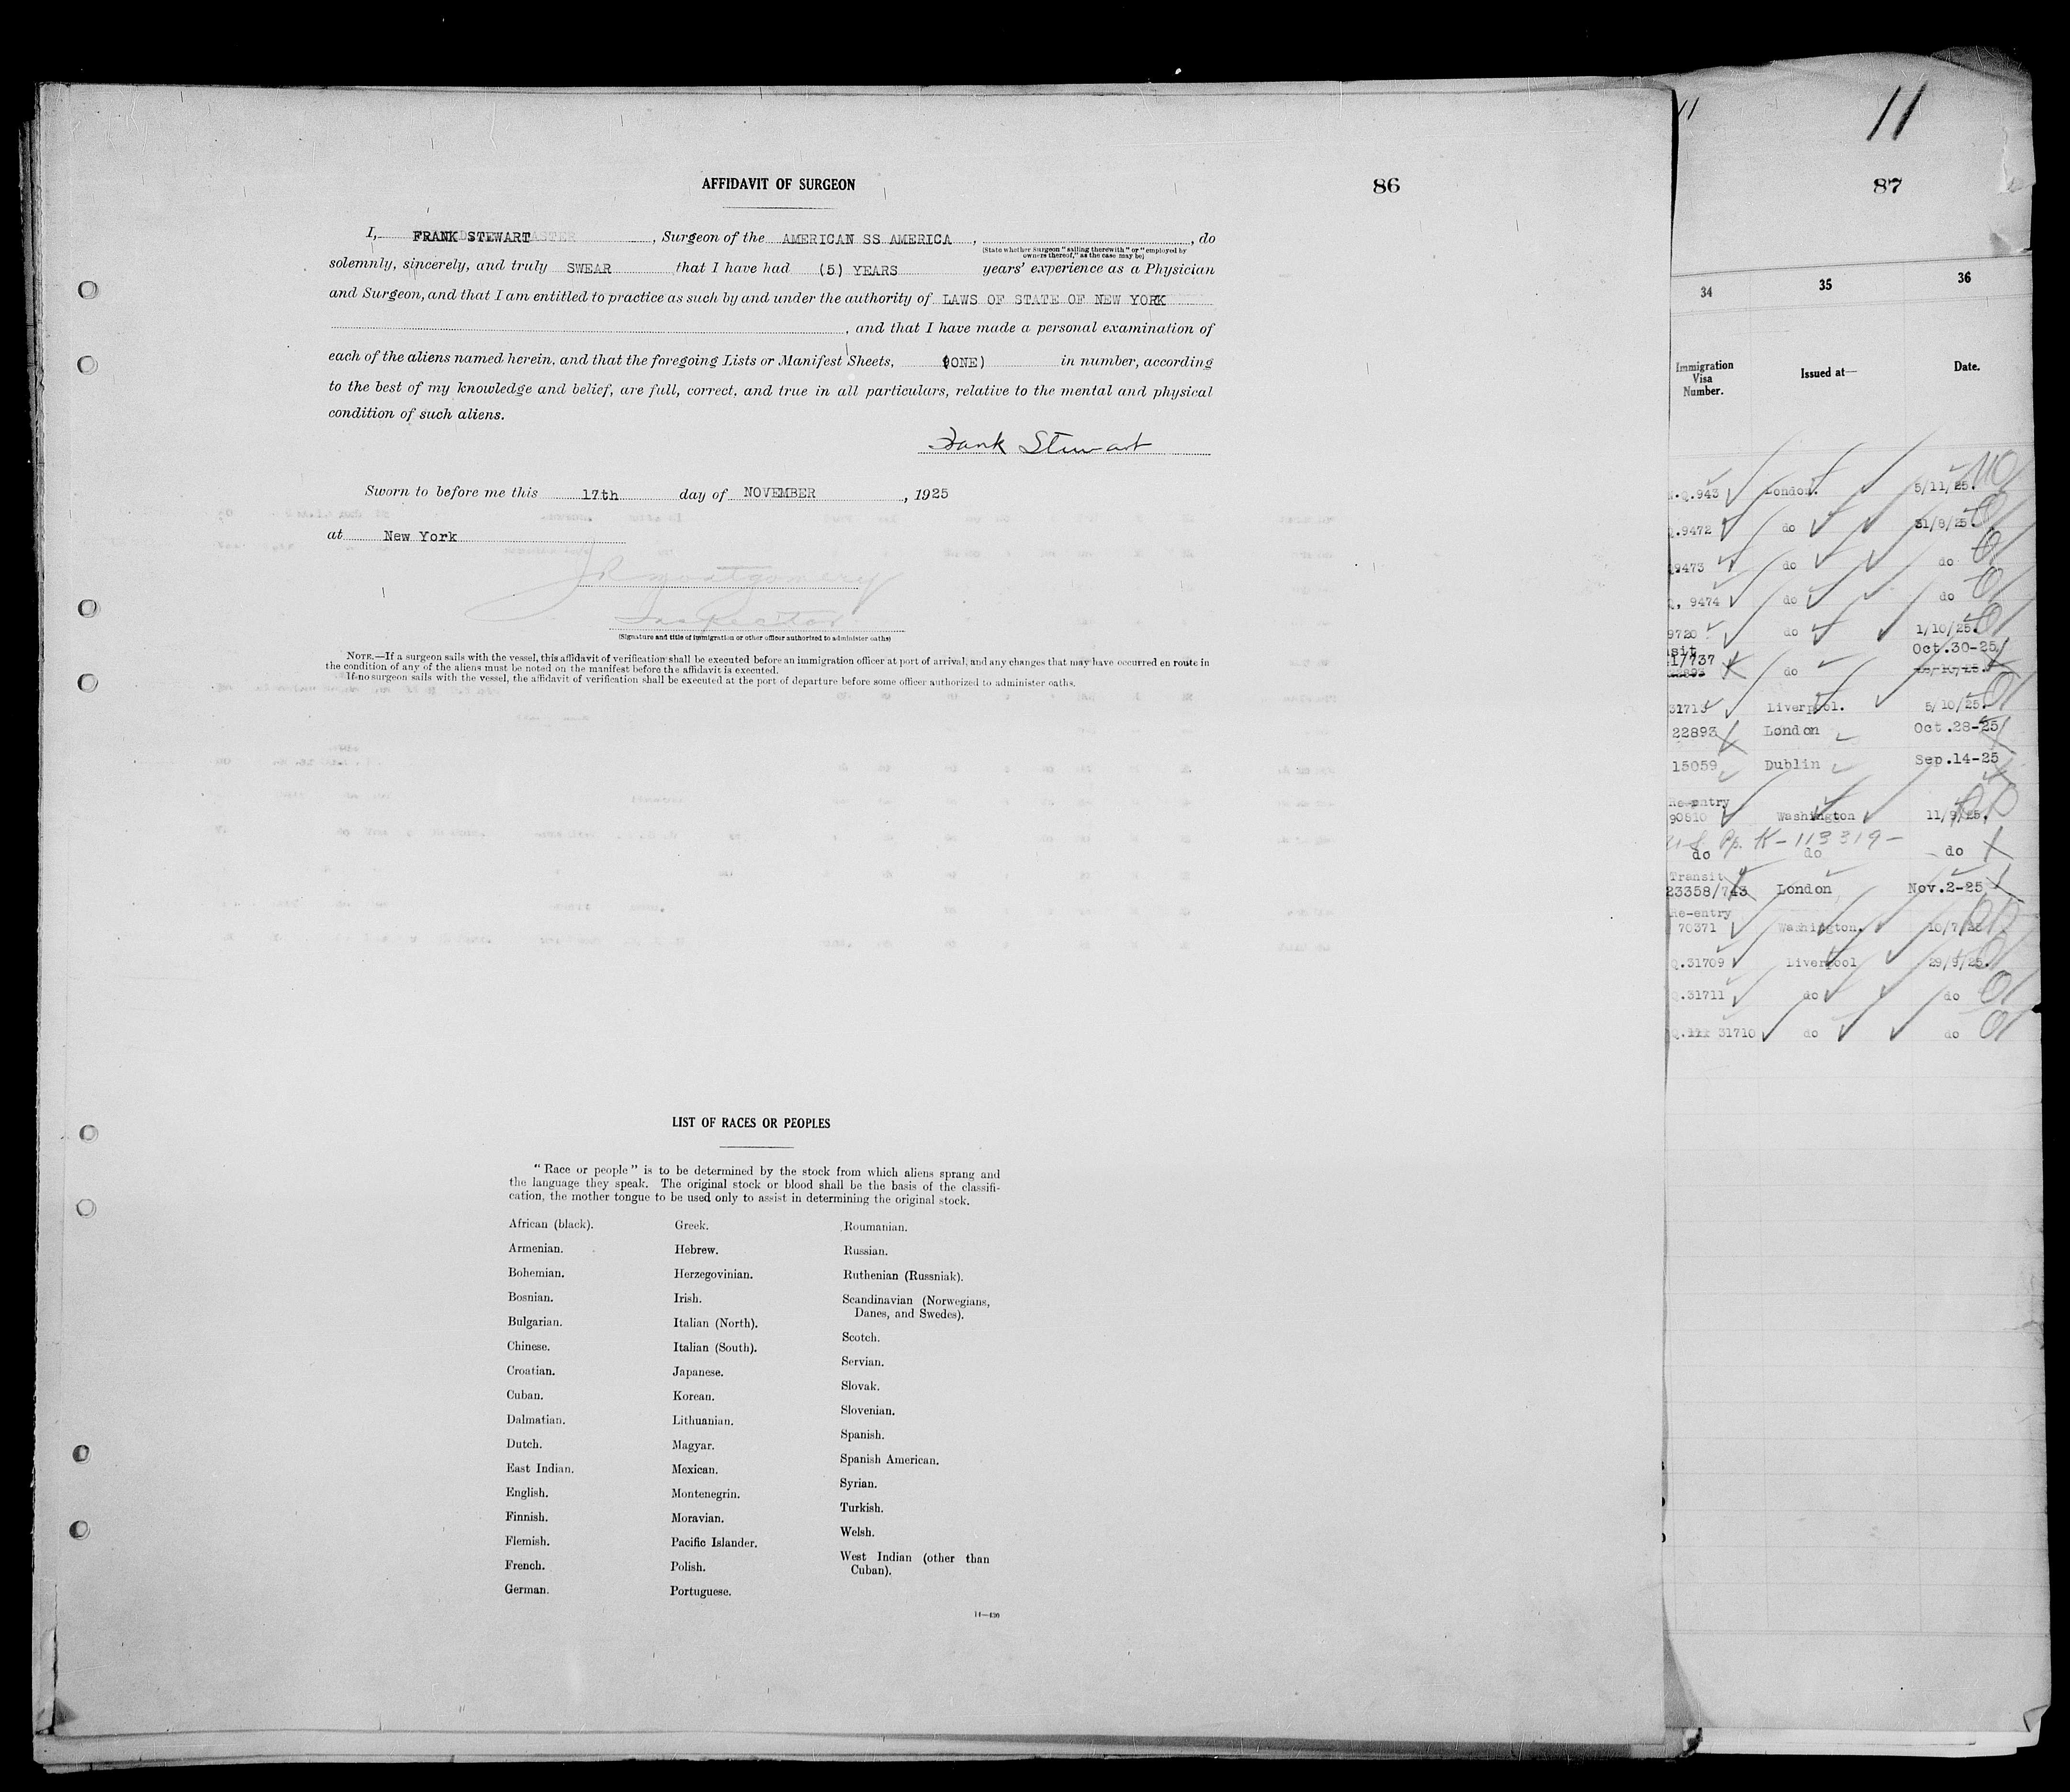 11
AFFIDAVIT OF SURGEON
86
87
I, FRANK STEWART, Surgeon of the AMERICAN SS AMERICA, , do
(State whether Surgeon "sailing therewith" or "employed by
owners thereof," as the case may be)
solemnly, sincerely, and truly SWEAR that I have had (5) YEARS years' experience as a Physician
and Surgeon, and that I am entitled to practice as such by and under the authority of LAWS OF STATE OF NEW YORK
, and that I have made a personal examination of
each of the aliens named herein, and that the foregoing Lists or Manifest Sheets, (ONE) in number, according
to the best of my knowledge and belief, are full, correct, and true in all particulars, relative to the mental and physical
condition of such aliens.
Frank Stewart
Sworn to before me this 17th day of NOVEMBER, 1925
at New York
JR Montgomery
Inspector
(Signature and title of immigration or other officer authorized to administer oaths)
NOTE.—If a surgeon sails with the vessel, this affidavit of verification shall be executed before an immigration officer at port of arrival, and any changes that may have occurred en route in
the condition of any of the aliens must be noted on the manifest before the affidavit is executed.
If no surgeon sails with the vessel, the affidavit of verification shall be executed at the port of departure before some officer authorized to administer oaths.
LIST OF RACES OR PEOPLES
"Race or people" is to be determined by the stock from which aliens sprang and
the language they speak. The original stock or blood shall be the basis of the classifi-
cation, the mother tongue to be used only to assist in determining the original stock.
African (black).
Armenian.
Bohemian.
Bosnian.
Bulgarian.
Chinese.
Croatian.
Cuban.
Dalmatian.
Dutch.
East Indian.
English.
Finnish.
Flemish.
French.
German.
Greek.
Hebrew.
Herzegovinian.
Irish.
Italian (North).
Italian (South).
Japanese.
Korean.
Lithuanian.
Magyar.
Mexican.
Montenegrin.
Moravian.
Pacific Islander.
Polish.
Portuguese.
Roumanian.
Russian.
Ruthenian (Russniak).
Scandinavian (Norwegians,
Danes, and Swedes).
Scotch.
Servian.
Slovak.
Slovenian.
Spanish.
Spanish American.
Syrian.
Turkish.
Welsh.
West Indian (other than
Cuban).
14—430
34 35 36
Immigration
Visa
Number.
Issued at—
Date.
Q.943 London. 5/11/25.
Q.9472 do 31/8/25
9473 do do
Q. 9474 do do
9720 do 1/10/25.
1/737 do Oct.30-25
31713 Liverpool. 5/10/25.
22893 London Oct.28-25
15059 Dublin Sep.14-25
Re-entry
90810 Washington 11/9/25.
Pp. K-113319-
do do do
Transit
23358/743 London Nov.2-25
Re-entry
70371 Washington. 10/7/
Q.31709 Liverpool 29/9/25.
Q.31711 do do
Q. 31710 do do